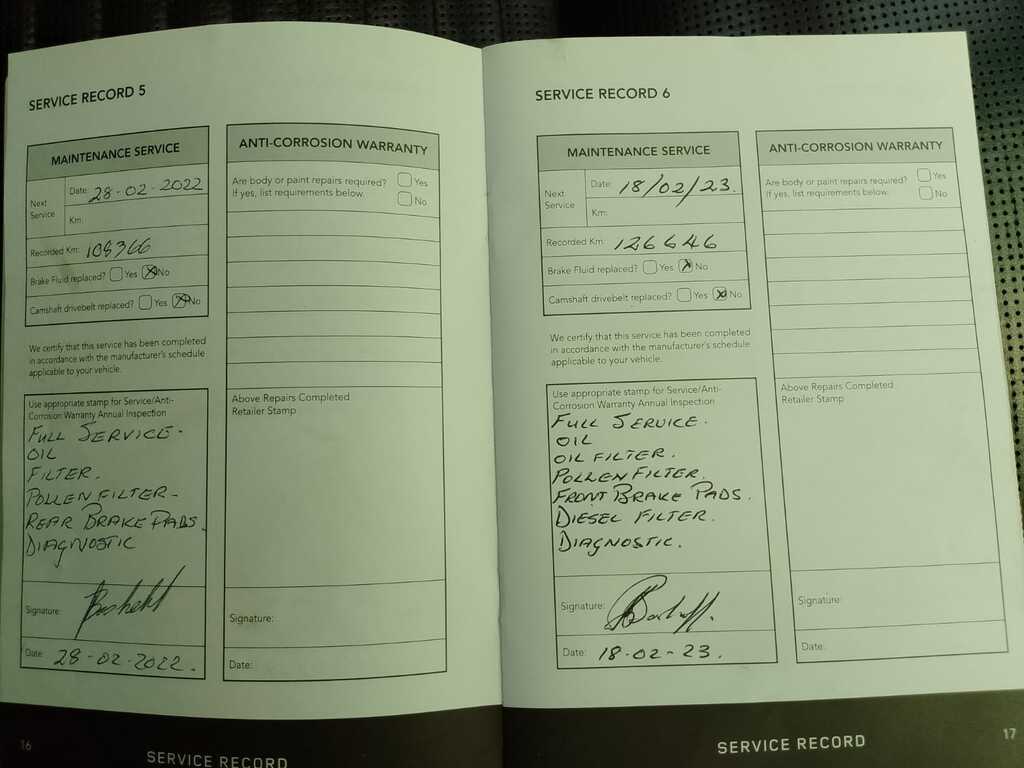 SERVICE RECORD 5
MAINTENANCE SERVICE
Next
Service
Date: 28-02-2022
Km:
Recorded Km: 108366
Brake Fluid replaced? Yes No
Camshaft drivebelt replaced? Yes No
We certify that this service has been completed
in accordance with the manufacturer's schedule
applicable to your vehicle.
Use appropriate stamp for Service/Anti-
Corrosion Warranty Annual Inspection
FULL SERVICE-
OIL
FILTER.
POLLEN FILTER-
REAR BRAKE PADS.
DIAGNOSTIC
Signature:
Date: 28-02-2022.
ANTI-CORROSION WARRANTY
Are body or paint repairs required? Yes
If yes, list requirements below. No
Above Repairs Completed
Retailer Stamp
Signature:
Date:
16
SERVICE RECORD
SERVICE RECORD 6
MAINTENANCE SERVICE
Next
Service
Date: 18/02/23.
Km:
Recorded Km: 126646
Brake Fluid replaced? Yes No
Camshaft drivebelt replaced? Yes No
We certify that this service has been completed
in accordance with the manufacturer's schedule
applicable to your vehicle.
Use appropriate stamp for Service/Anti-
Corrosion Warranty Annual Inspection
FULL SERVICE.
OIL
OIL FILTER.
POLLEN FILTER.
FRONT BRAKE PADS.
DIESEL FILTER.
DIAGNOSTIC.
Signature:
Date: 18-02-23.
ANTI-CORROSION WARRANTY
Are body or paint repairs required? Yes
If yes, list requirements below. No
Above Repairs Completed
Retailer Stamp
Signature:
Date:
SERVICE RECORD
17